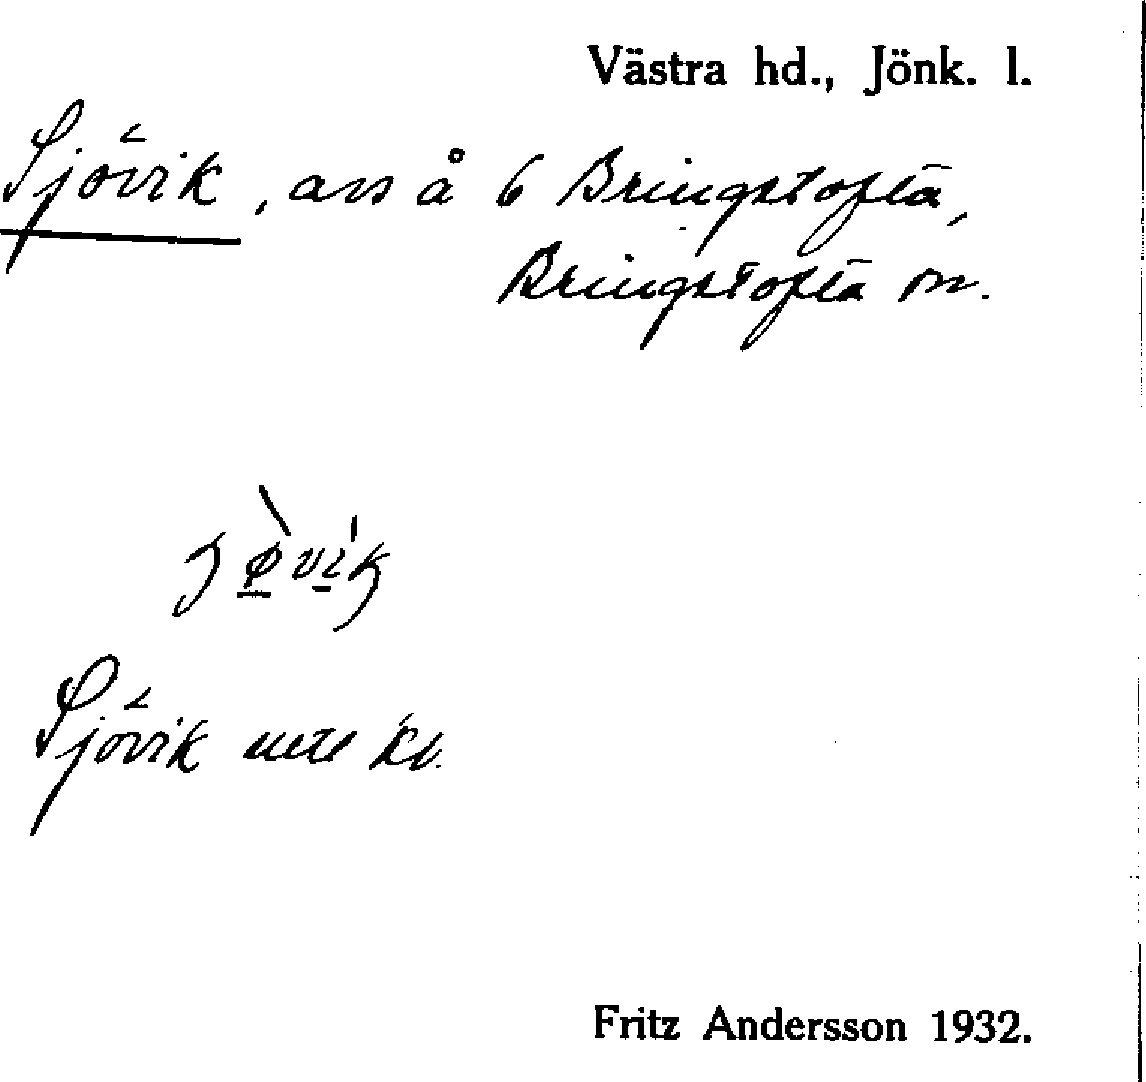 Västra hd., Jönk. l.
Sjövik, avs å 6 Bringstofta,
Bringstofta sn.
Sjövik kv.
Fritz Andersson 1932.